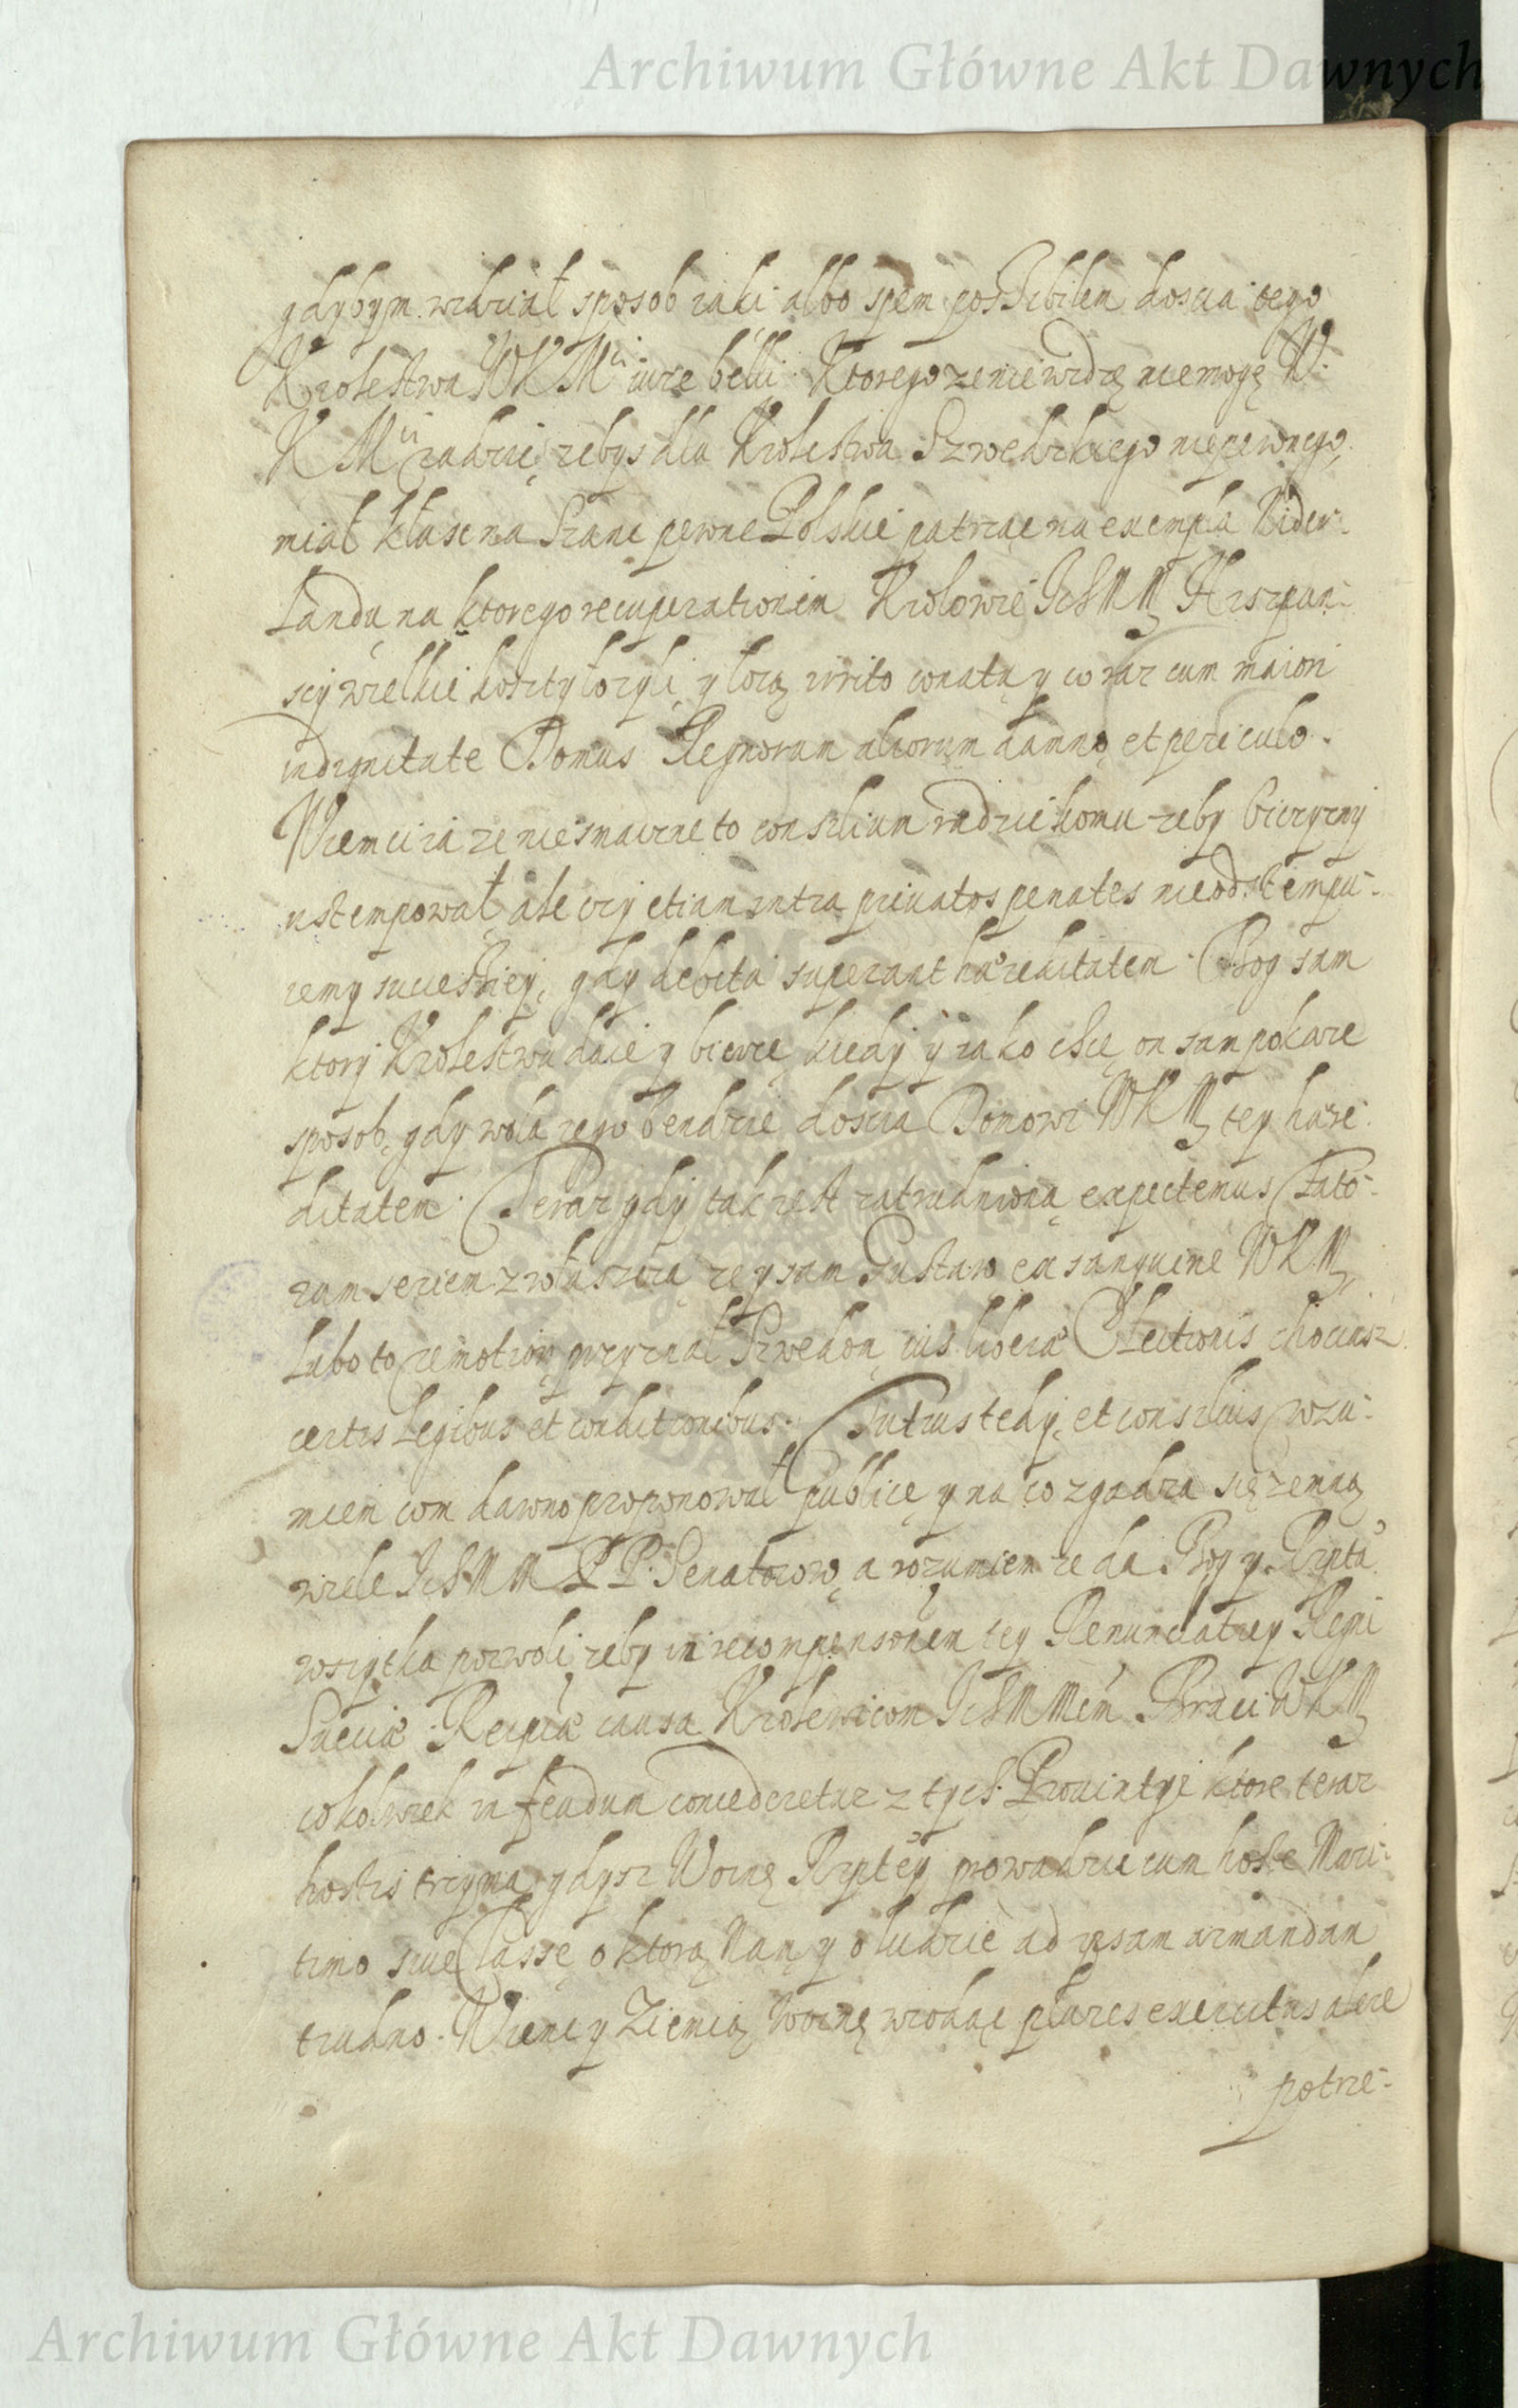 Archiwum Główne Akt Dawnych
gdybym widział sposob iaki albo spem possibilem doscia tego
Krolestwa WKMci iure belli. Ktorego ze nie widzę nie mogę W.
KMci radzić, zebys dla Krolestwa Szwedzkiego niepewnego,
miał kłasc na szanc pewne Polskie patrząc na exempla Nider-
Landu, na ktorego recuperationem Krolowie IchMM Hiszpan-
scy wielkie koszty łozyli, y łozą irrito conatu, y co raz cum maiori
indignitate Domus Regnorum aliorum damno, et periculo.
Wiemci ia ze niesmaczne to consilium radzić komu zeby Oiczyzny
ustempował, ale czy etiam intra priuatos penates nieodstempu-
iemy successiey, gdy debita superant hæreditatem. Bog sam
ktory Krolestwa daie y bierze, kiedy y iako chce, on sam pokaze
sposob, gdy wola iego bendzie doscia Domowi WKM tey hære-
ditatem. Teraz gdy tak iest zatrudniona, expectemus Fato-
rum seriem, zwłaszcza ze y sam Gustaw ex sanguine WKM,
Lubo to remotior, przyznał Szwedom ius liberæ Electionis chociasz
certis Legibus et conditionibus. Tutius tedy, et consultius rozu-
miem com dawno proponował publice, y na co zgadza się zemną
wiele IchMM PP. Senatorow, a rozumiem ze da Bog y Rzpta
wszytka pozwoli, zeby in recompensionem tey Renunciatiey Regni
Sueciæ, Reipcæ causa Krolewicom IchMMcm Braci WKM
cokolwiek in feudum concederetur z tych Prouintyi ktore teraz
hostis trzyma, gdysz Woinę Rzptey prowadzic cum hoste Mari-
timo sine Classe, o ktorą Nam, y o ludzie ad ipsam armandam
trudno. Wienc y Ziemią Woinę wiodąc plures exercitus alere
potrze-
Archiwum Główne Akt Dawnych